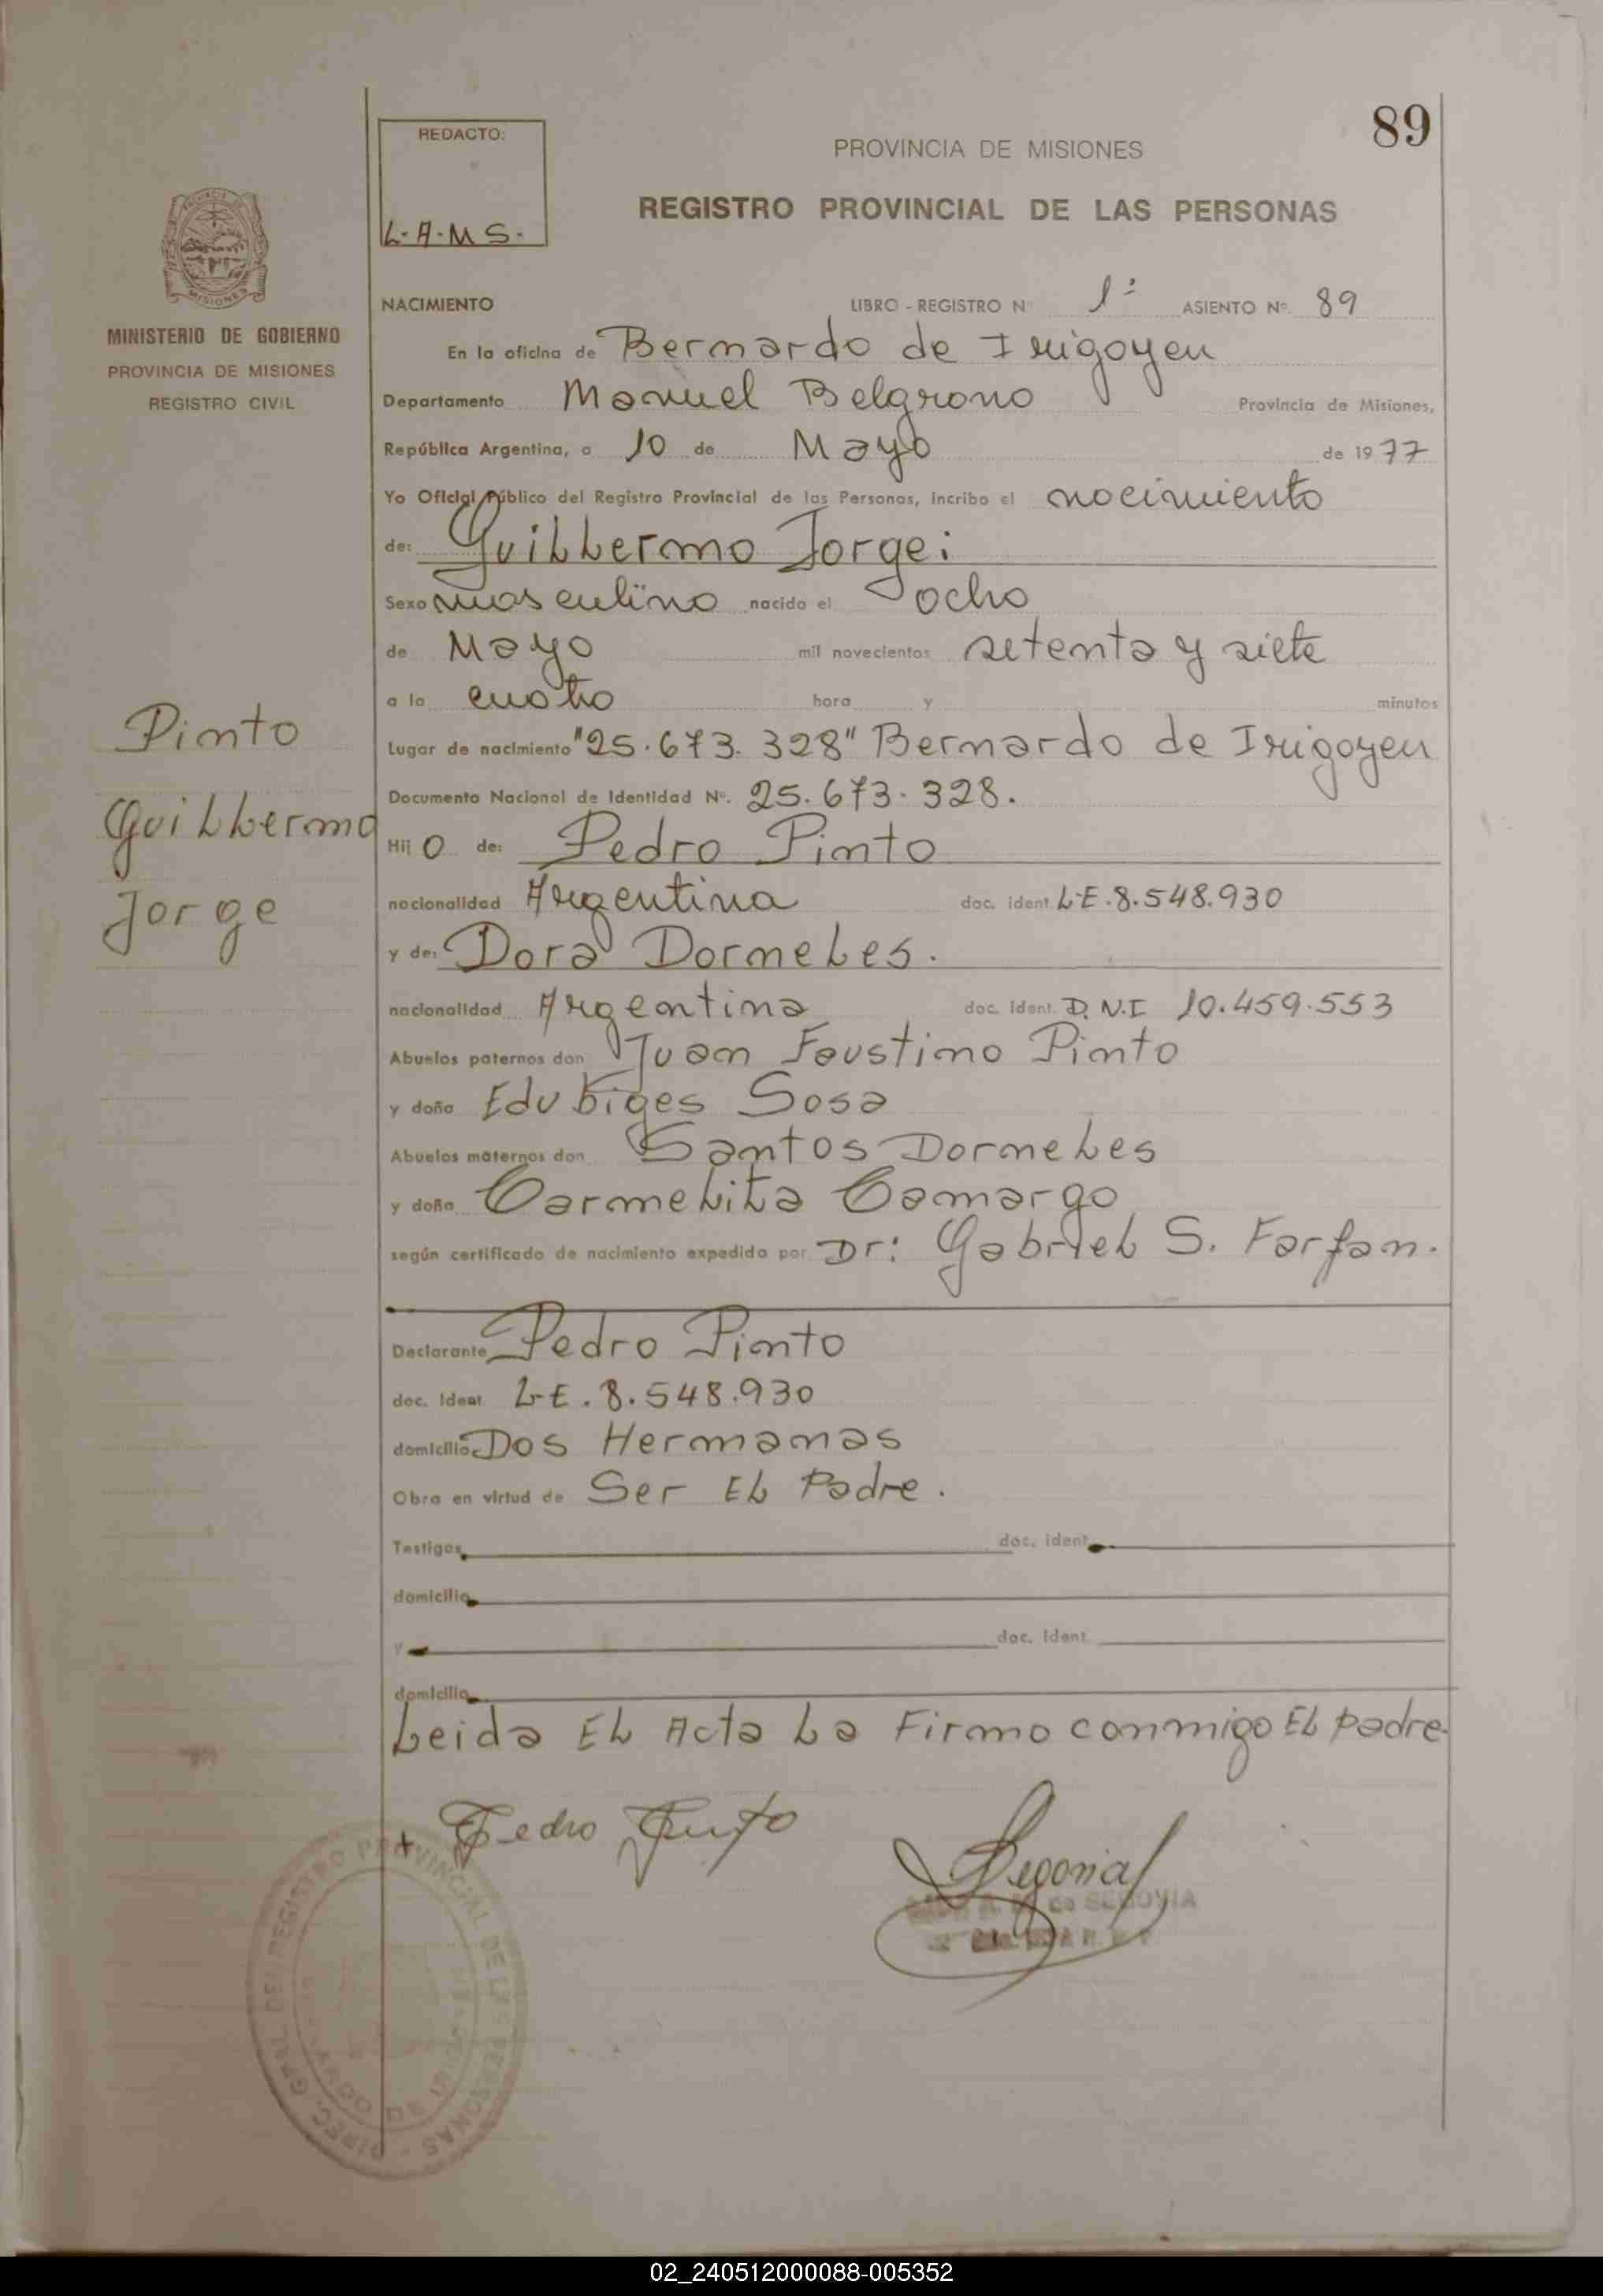 89
REDACTO:
L.A.M.S.
PROVINCIA DE MISIONES
REGISTRO PROVINCIAL DE LAS PERSONAS
MISIONES
MINISTERIO DE GOBIERNO
PROVINCIA DE MISIONES
REGISTRO CIVIL
NACIMIENTO LIBRO - REGISTRO Nº 1º ASIENTO Nº. 89
En la oficina de Bernardo de Irigoyen
Departamento Manuel Belgrano Provincia de Misiones,
República Argentina, a 10 de Mayo de 1977
Yo Oficial Público del Registro Provincial de las Personas, incribo el nacimiento
de: Guilhermo Jorge:
Sexo masculino nacido el ocho
de Mayo mil novecientos setenta y siete
a la cuatro hora y minutos
Lugar de nacimiento "25.673.328" Bernardo de Irigoyen
Documento Nacional de Identidad Nº. 25.673.328.
Pinto
Guilhermo
Jorge
Hijo de: Pedro Pinto
nacionalidad Argentina doc. ident. L-E.8.548.930
y de: Dora Dorneles.
nacionalidad Argentina doc. ident. D.N.I 10.459.553
Abuelos paternos don Juan Faustino Pinto
y doña Edubiges Sosa
Abuelos maternos don Santos Dorneles
y doña Carmelita Camargo
según certificado de nacimiento expedido por Dr: Gabriel S. Farfan.
Declarante Pedro Pinto
doc. ident L-E.8.548.930
domicilio Dos Hermanas
Obra en virtud de Ser El Padre.
Testigos doc. ident.
domicilio
y doc. ident.
domicilio
Leida El Acta La Firmo conmigo El padre.
+ Pedro Pinto
Segovia
de SEGOVIA
DIREC. GRAL. DEL REGISTRO PROVINCIAL DE LAS PERSONAS
02_240512000088-005352